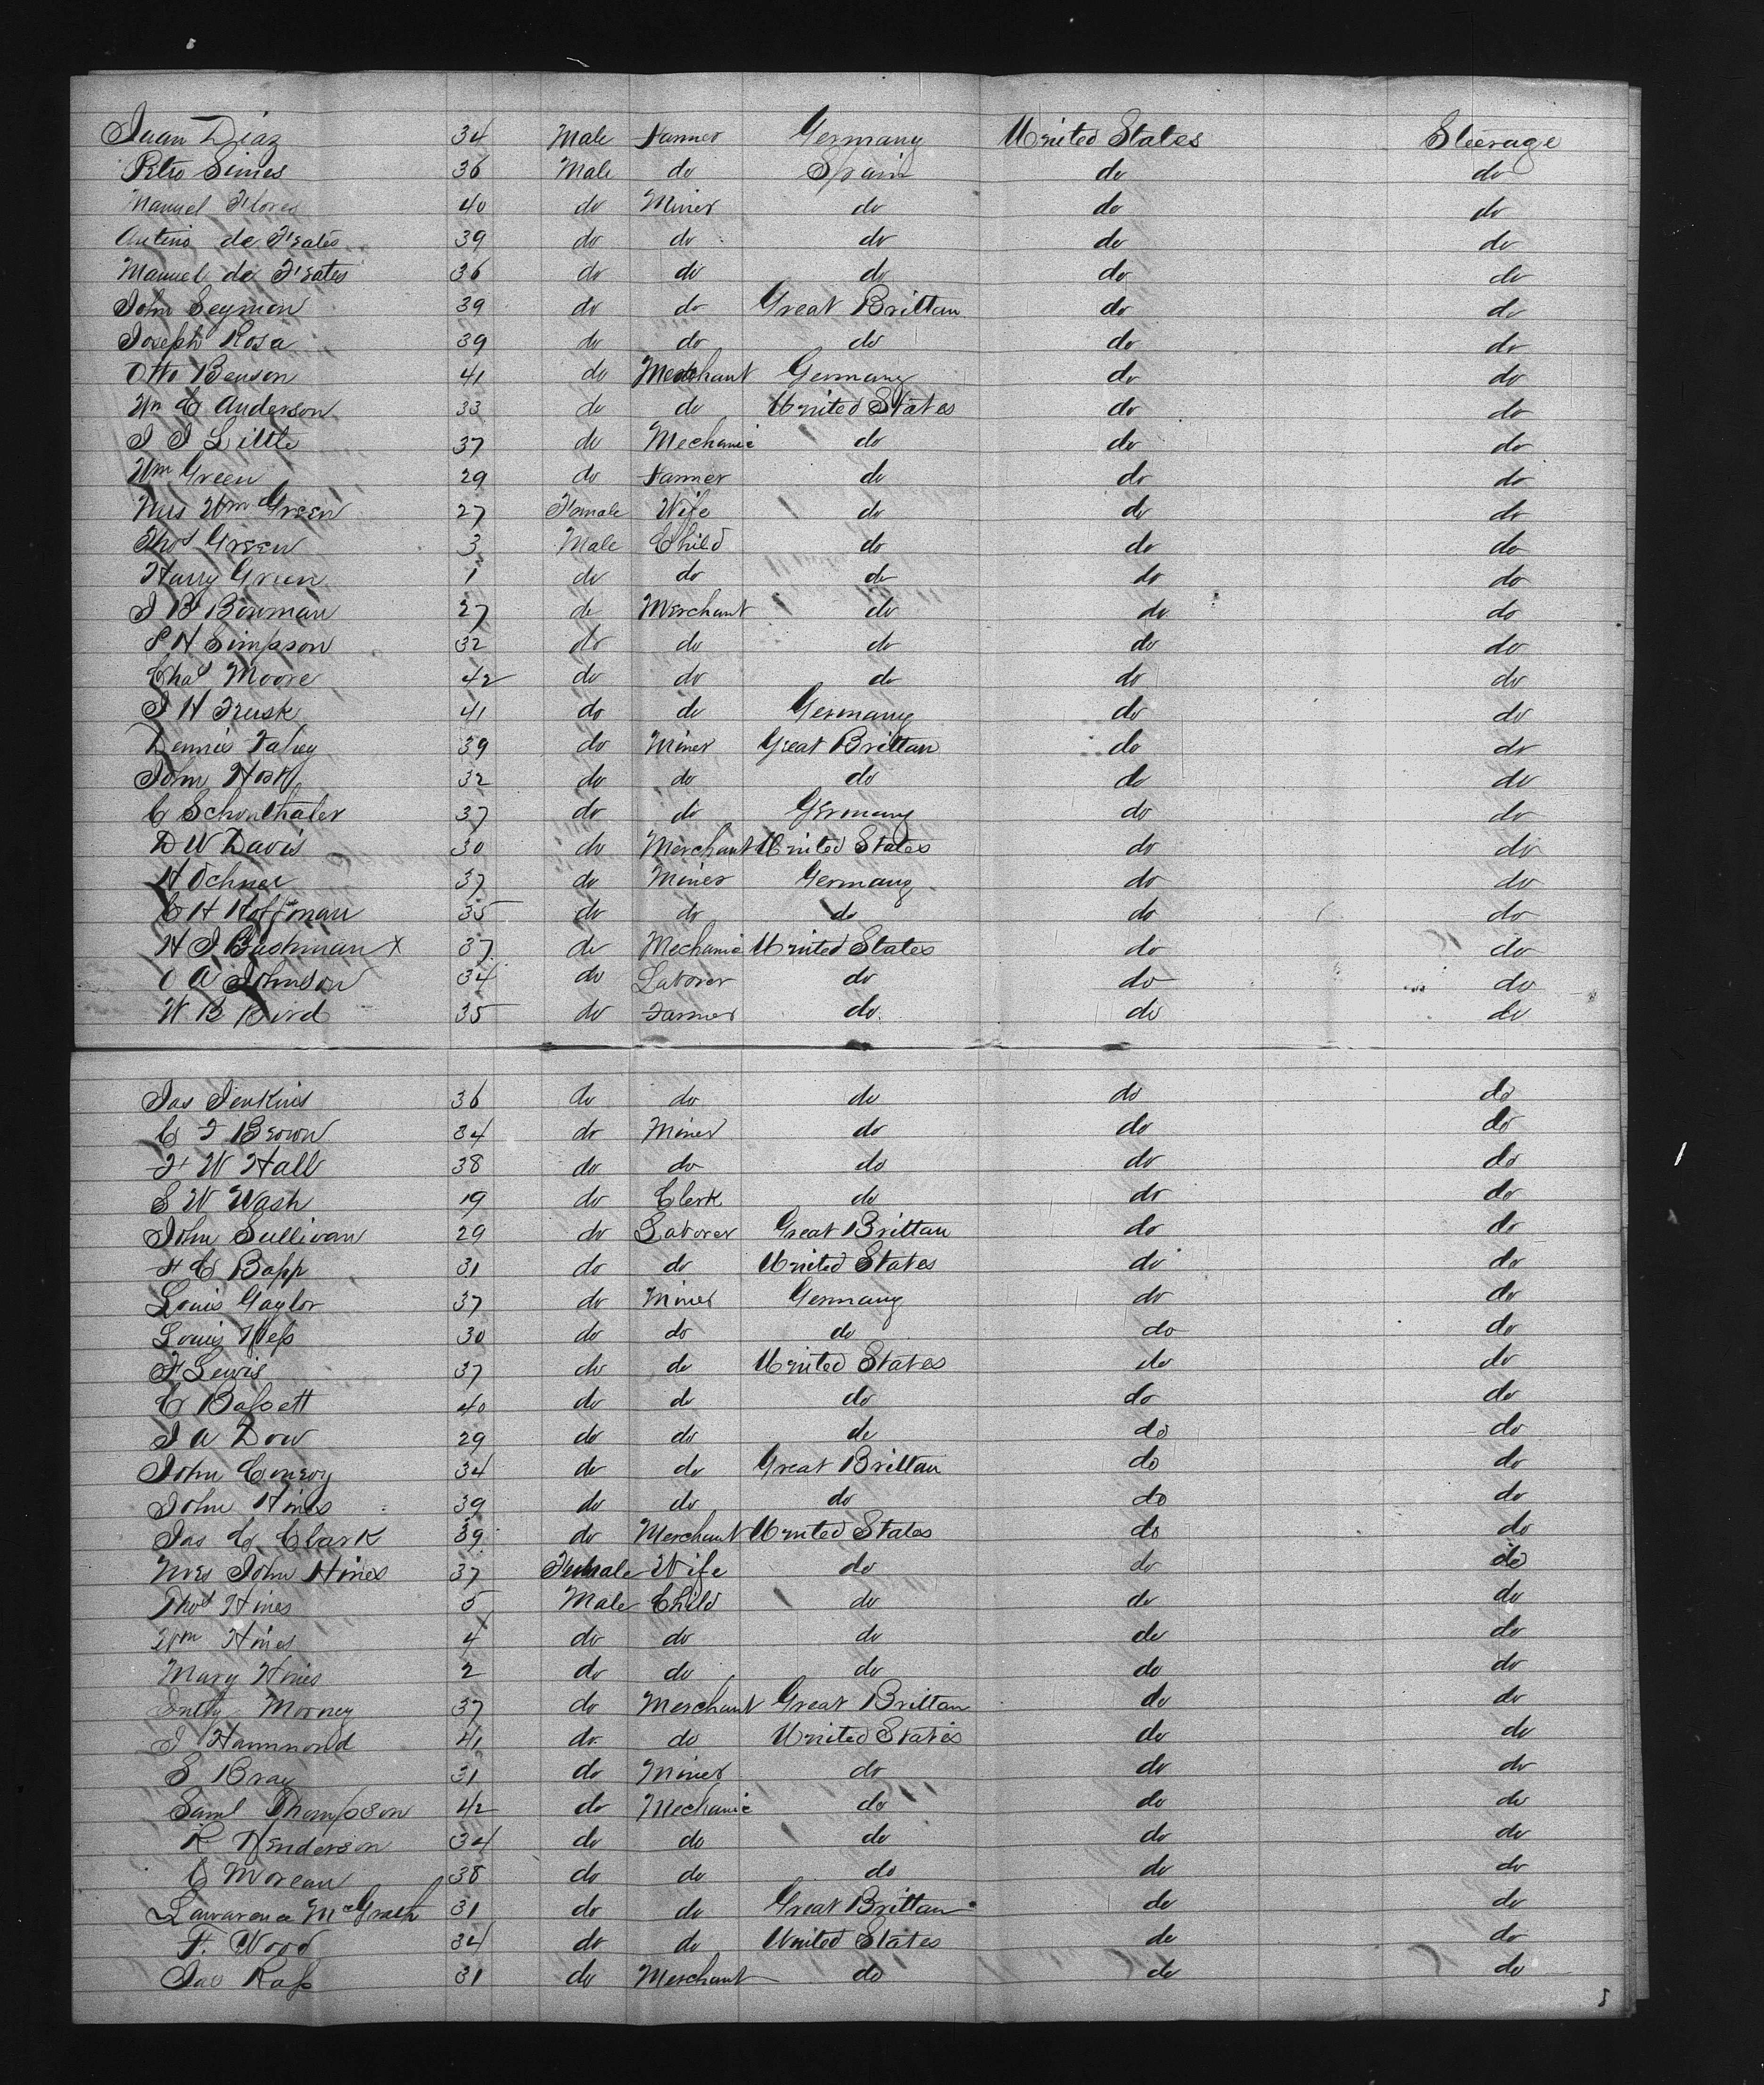 Juan Diaz 34 Male Farmer Germany United States Steerage
Petro Simes 36 Male do Spain do do
Manuel Flores 40 do Miner do do do
Antino de Frates 39 do do do do do
Manuel de Frates 36 do do do do do
John Seymon 39 do do Great Brittan do do
Joseph Rosa 39 do do do do do
Otto Benson 41 do Merchant Germany do do
Wm C Anderson 33 do do United States do do
J J Little 37 do Mechanic do do do
Wm Green 29 do Farmer do do do
Mrs Wm Green 27 Female Wife do do do
Thos Green 3 Male Child do do do
Harry Green 1 do do do do do
J B Bowman 27 do Merchant do do do
P H Simpson 32 do do do do do
Chas Moore 42 do do do do do
J H Trusk 41 do do Germany do do
Dennis Fahey 39 do Miner Great Brittan do do
John Hosk 32 do do do do do
C Schonthaler 37 do do Germany do do
D W Davis 30 do Merchant United States do do
H Ochner 37 do Miner Germany do do
C H Hoffman 35 do do do do do
H J Bushman x 37 do Mechanic United States do do
O A Johnson 34 do Laborer do do do
W B Bird 35 do Farmer do do do
Jas Jenkins 36 do do do do do
C F Brown 34 do Miner do do do
F W Hall 38 do do do do do
S W Wash 19 do Clerk do do do
John Sullivan 29 do Laborer Great Brittan do do
H C Bapp 31 do do United States do do
Louis Gaylor 37 do Miner Germany do do
Louis Hess 30 do do do do do
F Lewis 37 do do United States do do
C Bassett 40 do do do do do
J A Dow 29 do do do do do
John Conroy 34 do do Great Brittan do do
John Hines 39 do do do do do
Jas C Clark 39 do Merchant United States do do
Mrs John Hines 37 Female Wife do do do
Thos Hines 5 Male Child do do do
Wm Hines 4 do do do do do
Mary Hines 2 do do do do do
Morney 37 do Merchant Great Brittan do do
J Hammond 41 do do United States do do
S Bray 31 do Miner do do do
Saml Thompson 42 do Mechanic do do do
R Henderson 34 do do do do do
C Morean 38 do do do do do
Lawarence McGrath 31 do do Great Brittan do do
F. Wood 34 do do United States do do
Jas Rass 31 do Merchant do do do